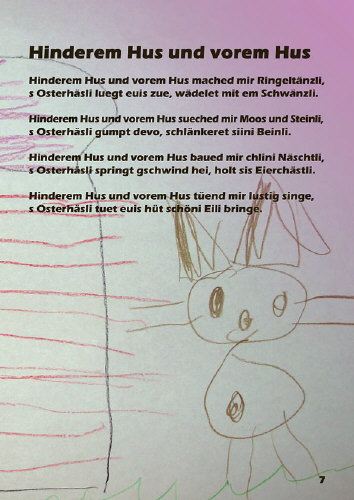 Hinderem Hus und vorem Hus
Hinderem Hus und vorem Hus mached mir Ringeltänzli,
s Osterhäsli luegt euis zue, wädelet mit em Schwänzli.
Hinderem Hus und vorem Hus sueched mir Moos und Steinli,
s Osterhäsli gumpt devo, schlänkeret siini Beinli.
Hinderem Hus und vorem Hus baued mir chlini Näschtli,
s Osterhäsli springt gschwind hei, holt sis Eierchästli.
Hinderem Hus und vorem Hus tüend mir lustig singe,
s Osterhäsli tuet euis hüt schöni Eili bringe.
7